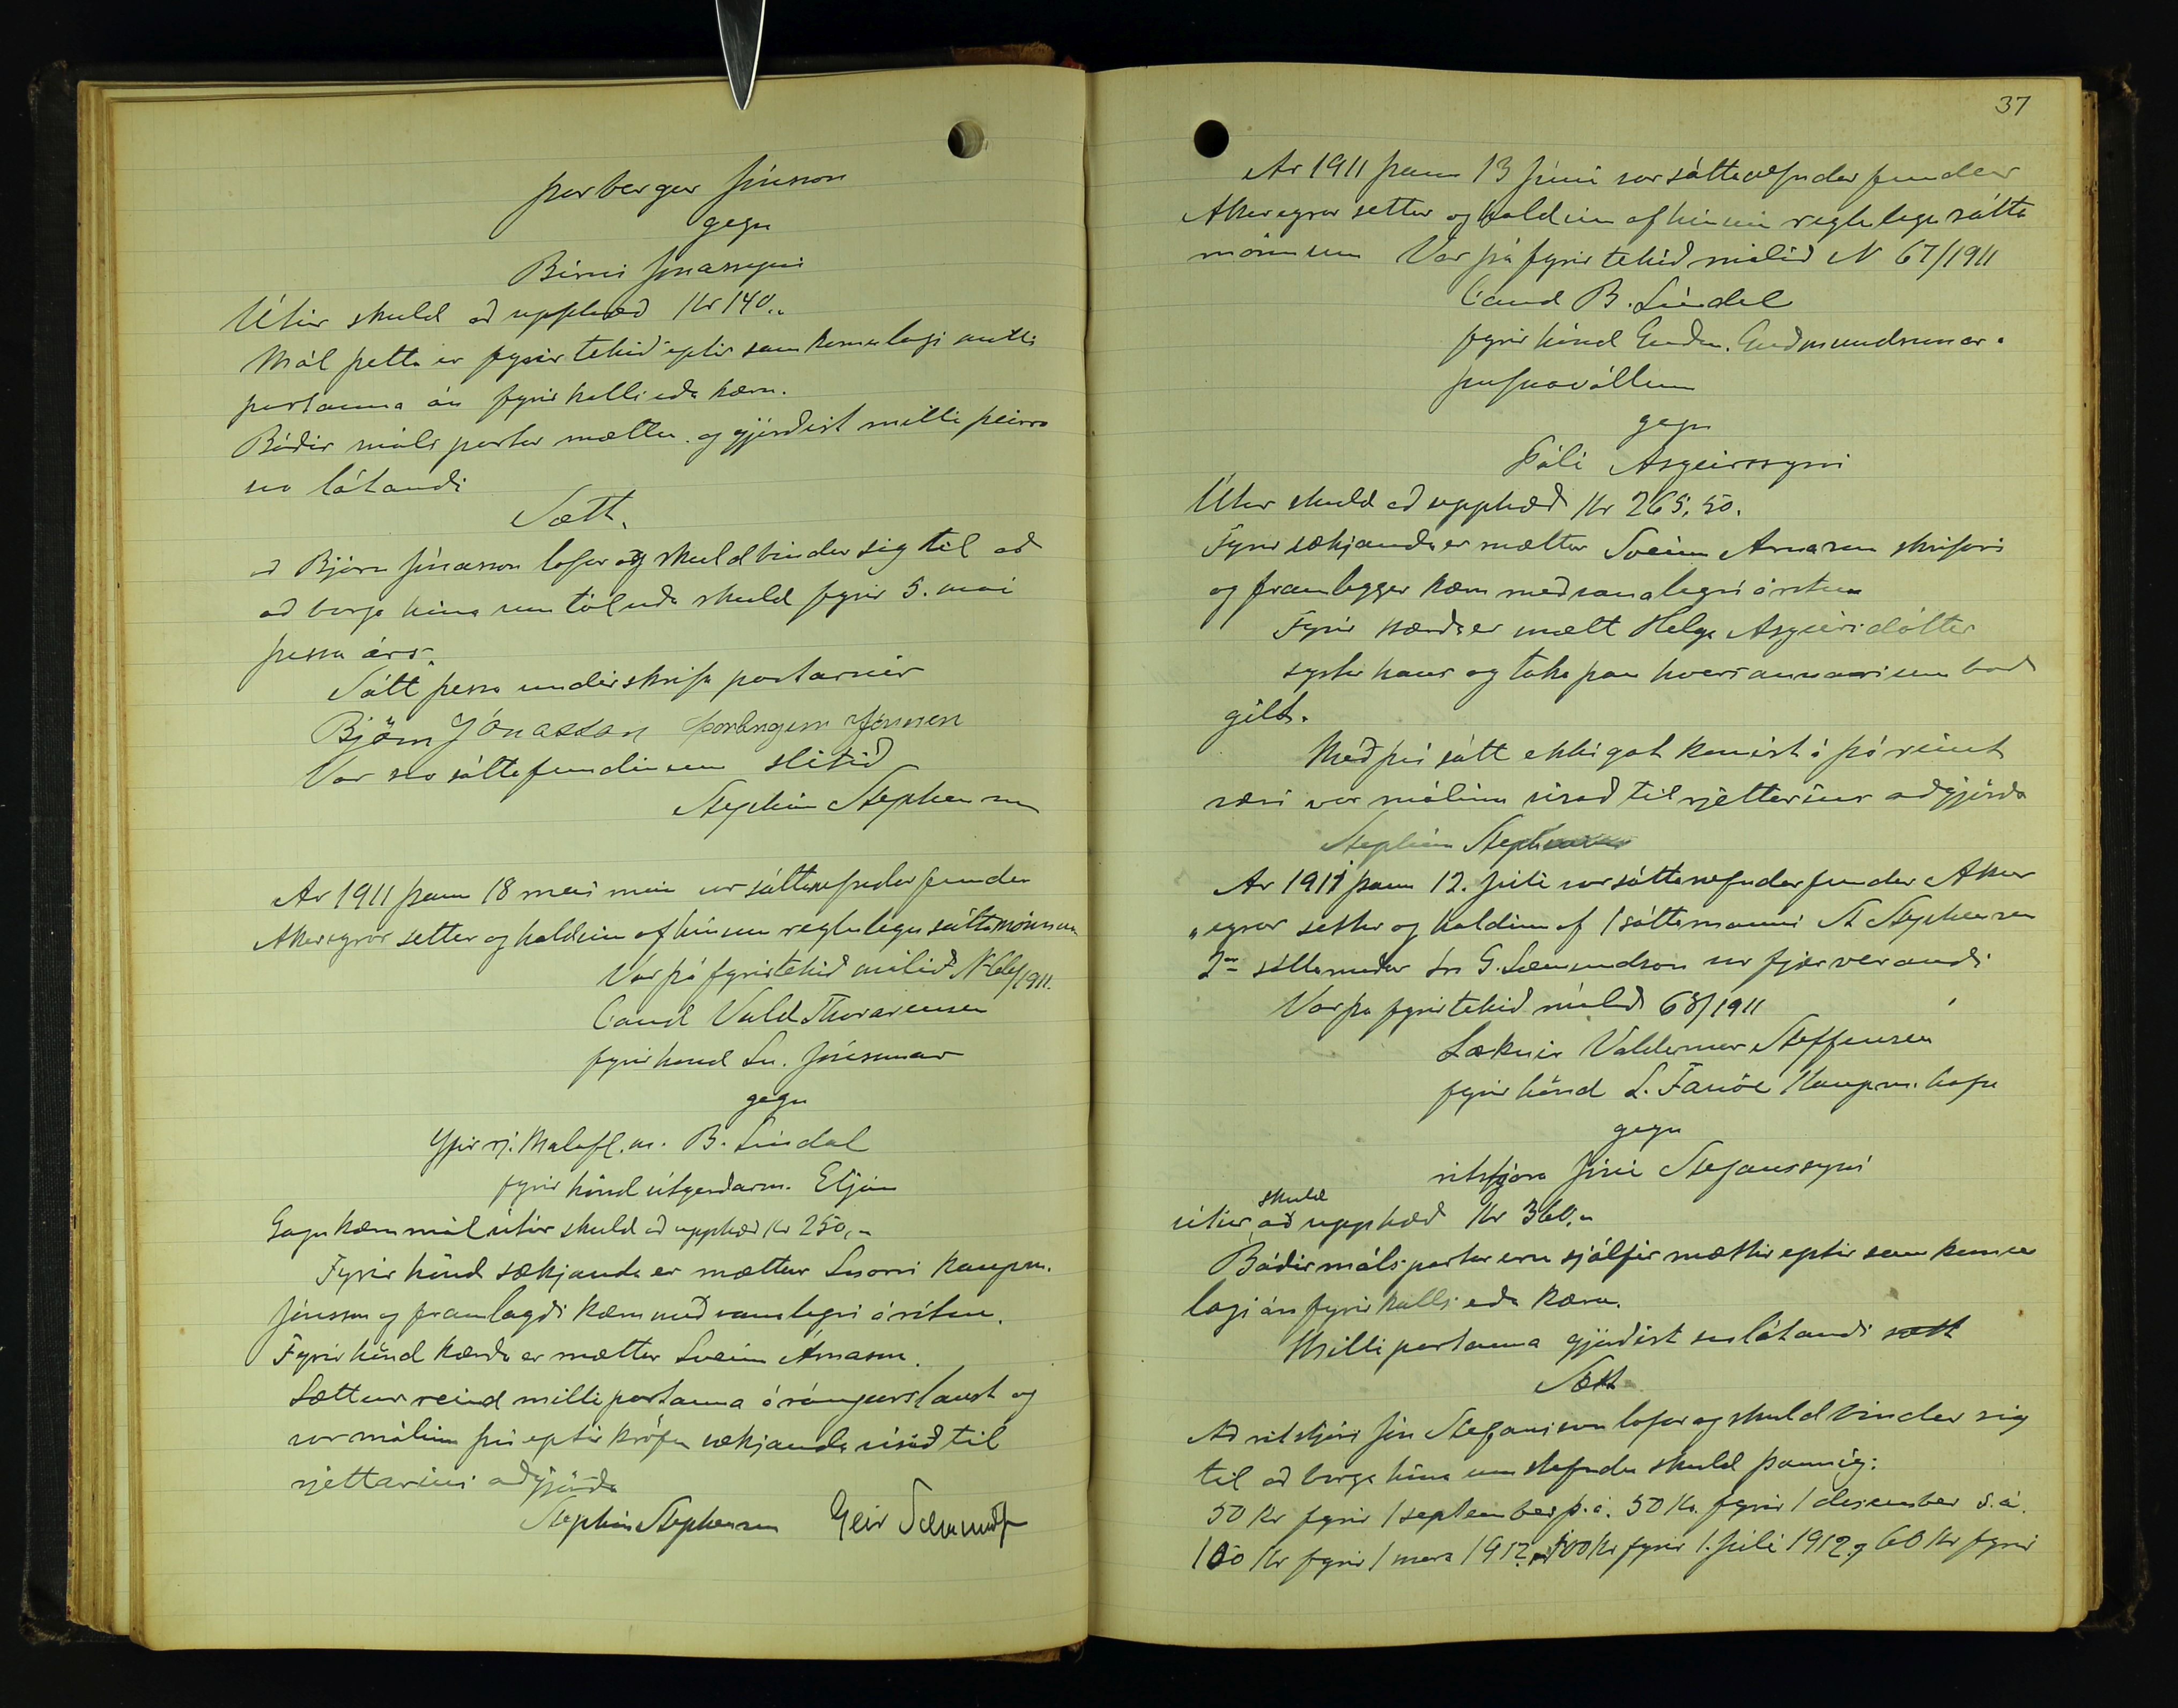 Þorbergur Jónsson
gegn
Birni Jónassyni
Útúr skuld að upphæð Kr 140,,
Mál þetta er fyrirtekið eptir samkomulagi milli
partanna án fyrirkalls eða kæru.
Báðir máls partar mættu og gjörðist milli þeirra
svo látandi
Sætt,
að Björn Jónasson lofar og skuldbindur sig til að
að borga hina umtöluðu skuld fyrir 5. maí
þessa árs.
Sátt þessa undirskrifa partarnir
Björn Jónasson Þorbergur Jónsson
Var svo sáttafundinum slitið
Stephán Stephensen
Ár 1911 þann 18 maí var sáttanefndarfundur
Akureyrar settur og haldinn af hinum reglulegu sáttamönnum
Var þá fyrirtekið málið N 66/1911.
Cand Vald Thorarensen
fyrir hönd Sn. Jónssonar
gegn
Yfir rj. Málafl.m. B. Líndal
fyrir hönd útgerðarm. Eljan
Gagnkæru mál útúr skuld að upphæð Kr 250,-
Fyrir hönd sækjanda er mættur Snorri kaupm.
Jónsson og framlagði kæru með vanalegri áritun.
Fyrir hönd kærða er mættur Sveinn Árnason.
Sættir reind milli partanna árangurslaust og
var málinu því eptir kröfu sækjanda vísað til
rjettarins aðgjörða
Stephán Stephensen Geir Sæmundss
37
Ár 1911 þann 13 júní var sáttanefndar fundur
Akureyrar settur og haldinn af hinum reglulegu sátta
mönnum Var þá fyrirtekið málið N 67/1911
Cand B. Líndal
fyrir hönd Guðm. Guðmundssonar
Þúfnavöllum
gegn
Páli Asgeirssyni
Útúr skuld að upphæð Kr 265,50.
Fyrir sækjanda er mættur Sveinn Arnason skrifari
og framleggur kæru með vanalegri áritun
Fyrir kærða er mætt Helga Asgeirsdóttir
systir hans og taka þau hvers annars umboð
gilt.
Með því sátt ekki gat komist á þó reint
væri var málinu vísað til rjettarins aðgjörða
Stephán Stephensen
Ár 1911 þann 12. júlí var sáttanefndarfundur Akur
„eyrar settur og haldinn af 1 sáttamanni St Stephensen
2ar sáttamaður sr G. Sæmundsson var fjærverandi
Var þá fyrirtekið málið 68/1911
Læknir Valdemar Steffensen
fyrir hönd L. Fanöe Kaupm.hafn
gegn
ritstjóra Jóni Stefanssyni
skuld
útúr að upphæð Kr 360,-
Báðir máls partar eru sjálfir mættir eptir samkomu
lagi án fyrirkalls eða kæru.
Milli partanna gjörðist svo látandi sætt
Sætt
Að ritstjóri Jón Stefánsson lofar og skuldbindur sig
til að borga hina umstefndu skuld þannig:
50 kr fyrir 1 september þ.á. 50 Kr. fyrir 1 desember s.á.
100 Kr fyrir 1 mars 1912, 100 Kr fyrir 1. júlí 1912 og 60 Kr fyrir